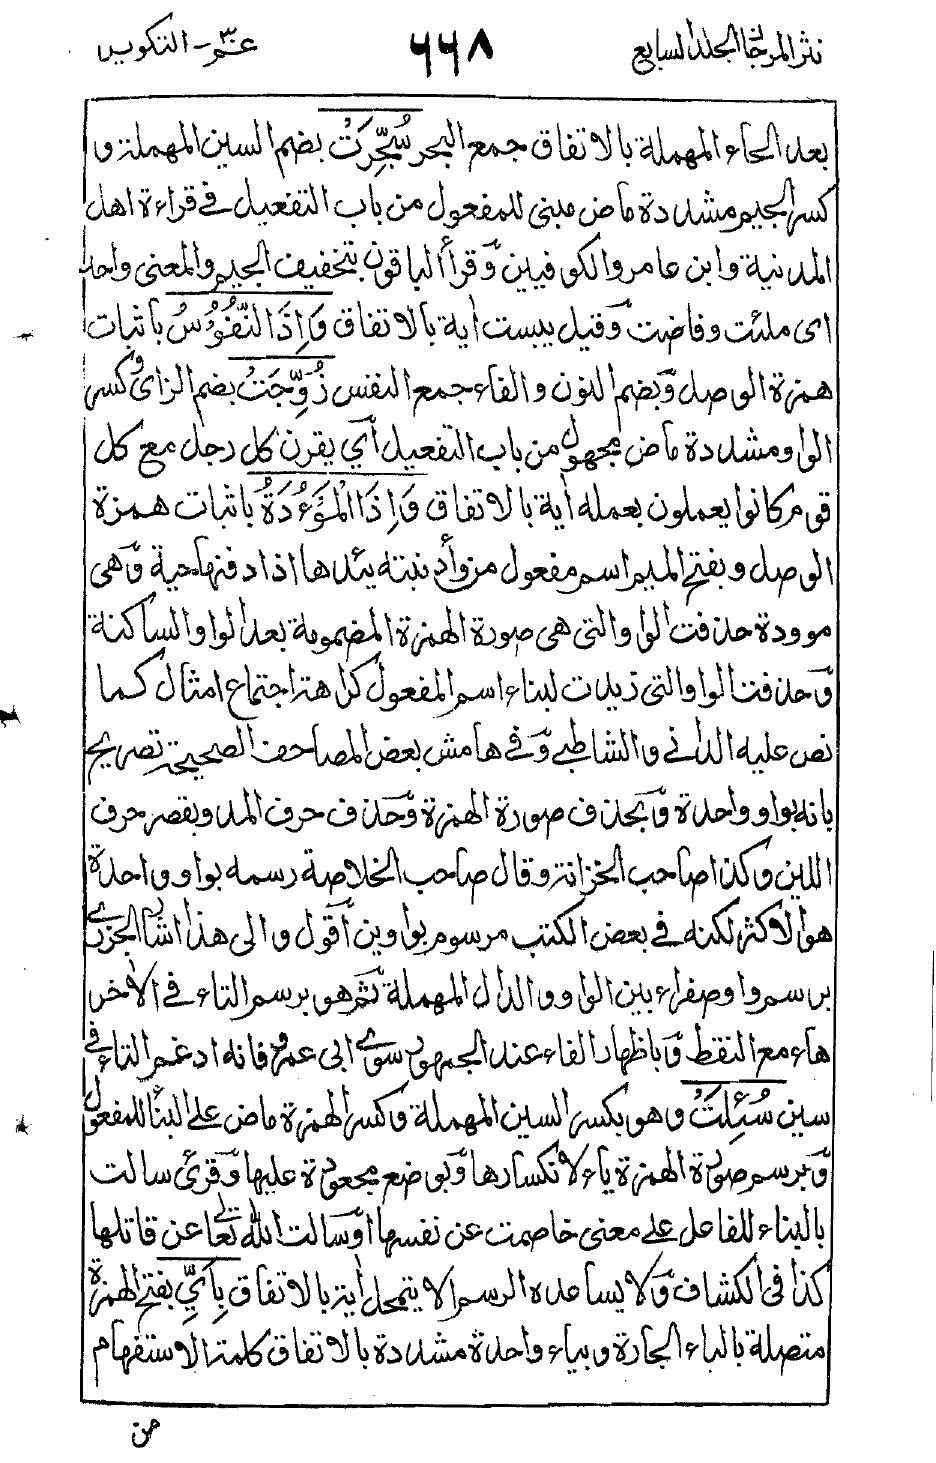 نثر المرجان المجلد السابع ٦٦٨ عم٣ - التكوير
بعد الحاء المهملة بالاتفاق جمع البحر سُجِّرَتْ بضم السين المهملة و
كسر الجيم مشددة ماض مبنى للمفعول من باب التفعيل في قراءة اهل
المدنية وابن عامر والكوفيين وقرأ الباقون بتخفيف الجيم والمعنى واحد
اى ملئت وفاضت وقيل يبست أية بالاتفاق وَاِذَا النُّفُوْسُ باثبات
همزة الوصل وبضم النون والفاء جمع النفس زُوِّجَتْ بضم الزاى وكسر
الواو مشددة ماض مجهول من باب التفعيل أي يقرن كل رجل مع كل
قوم كانوا يعملون بعمله أية بالاتفاق وَاِذَا الْمَوْءُدَةُ باثبات همزة
الوصل وبفتح الميم اسم مفعول من وأد بنته يئدها اذا دفنها حية وهى
موودة حذفت الواو التى هى صورة الهمزة المضمومة بعد الواو الساكنة
وحذفت الواو التى زيدت لبناء اسم المفعول كراهة اجتماع امثال كما
نص عليه الدانى والشاطبي وفي هامش بعض المصاحف الصحيحة تصريح
بانه بواو واحدة وبحذف صورة الهمزة وحذف حرف المد وبقصر حرف
اللين وكذا صاحب الخزانة وقال صاحب الخلاصة رسمه بواو واحدة
هو الاكثر لكنه في بعض الكتب مرسوم بواوين أقول والى هذا اشار الجزرے
برسم واو صفراء بين الواو والدال المهملة ثم هو برسم التاء في الاخر
هاء مع النقط وباظهار الفاء عند الجمهور سوے ابى عمرو فانه ادغم التاء في
سين سُئِلَتْ وهو بكسر السين المهملة وكسر الهمزة ماض على البناء للمفعول
وبرسم صورة الهمزة ياء لانكسارها وبوضع مجعودة عليها وقرئ سالت
بالبناء للفاعل على معنى خاصمت عن نفسها او سالت الله تعالى عن قاتلها
كذا في الكشاف ولا يساعده الرسم الا بتمحل أية بالاتفاق بِاَىِّ بفتح الهمزة
متصلة بالباء الجارة وبياء واحدة مشددة بالاتفاق كلمة الاستفهام
من